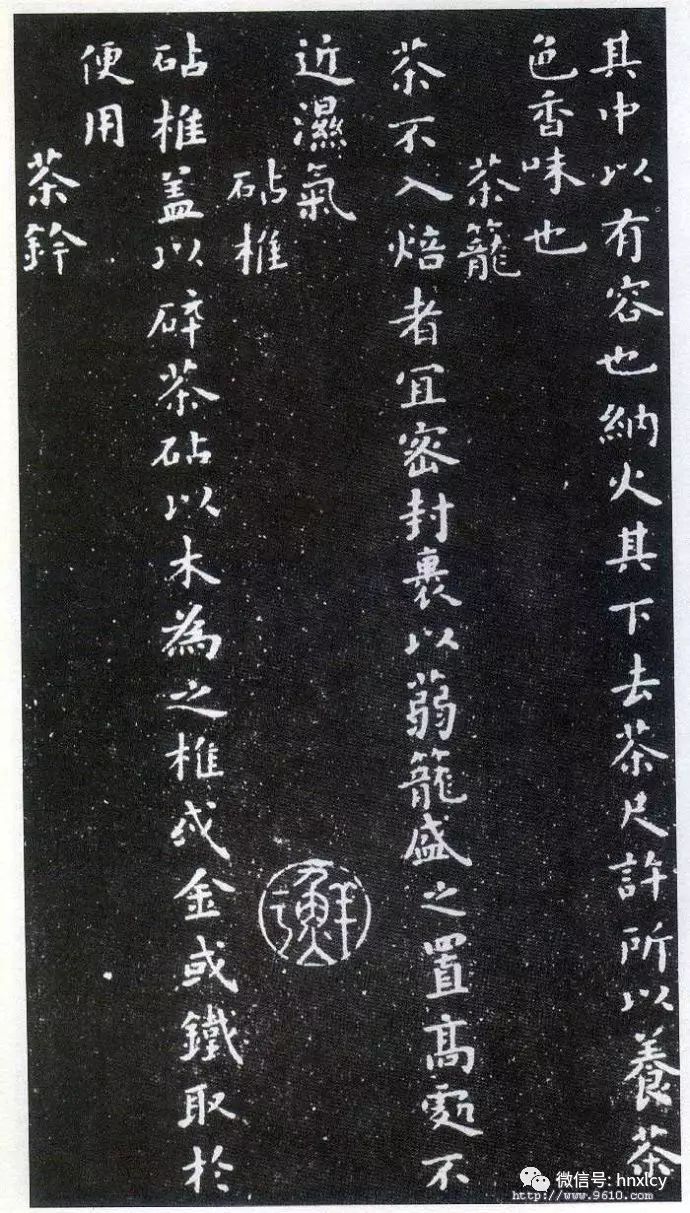 其中以有容也納火其下去茶尺許所以養茶
色香味也
茶籠
茶不入焙者宜密封裹以蒻籠盛之置高處不
近濕氣
砧椎
砧椎蓋以碎茶砧以木為之椎或金或鐵取於
便用
茶鈐
微信号: hnxlcy
http://www.9610.com